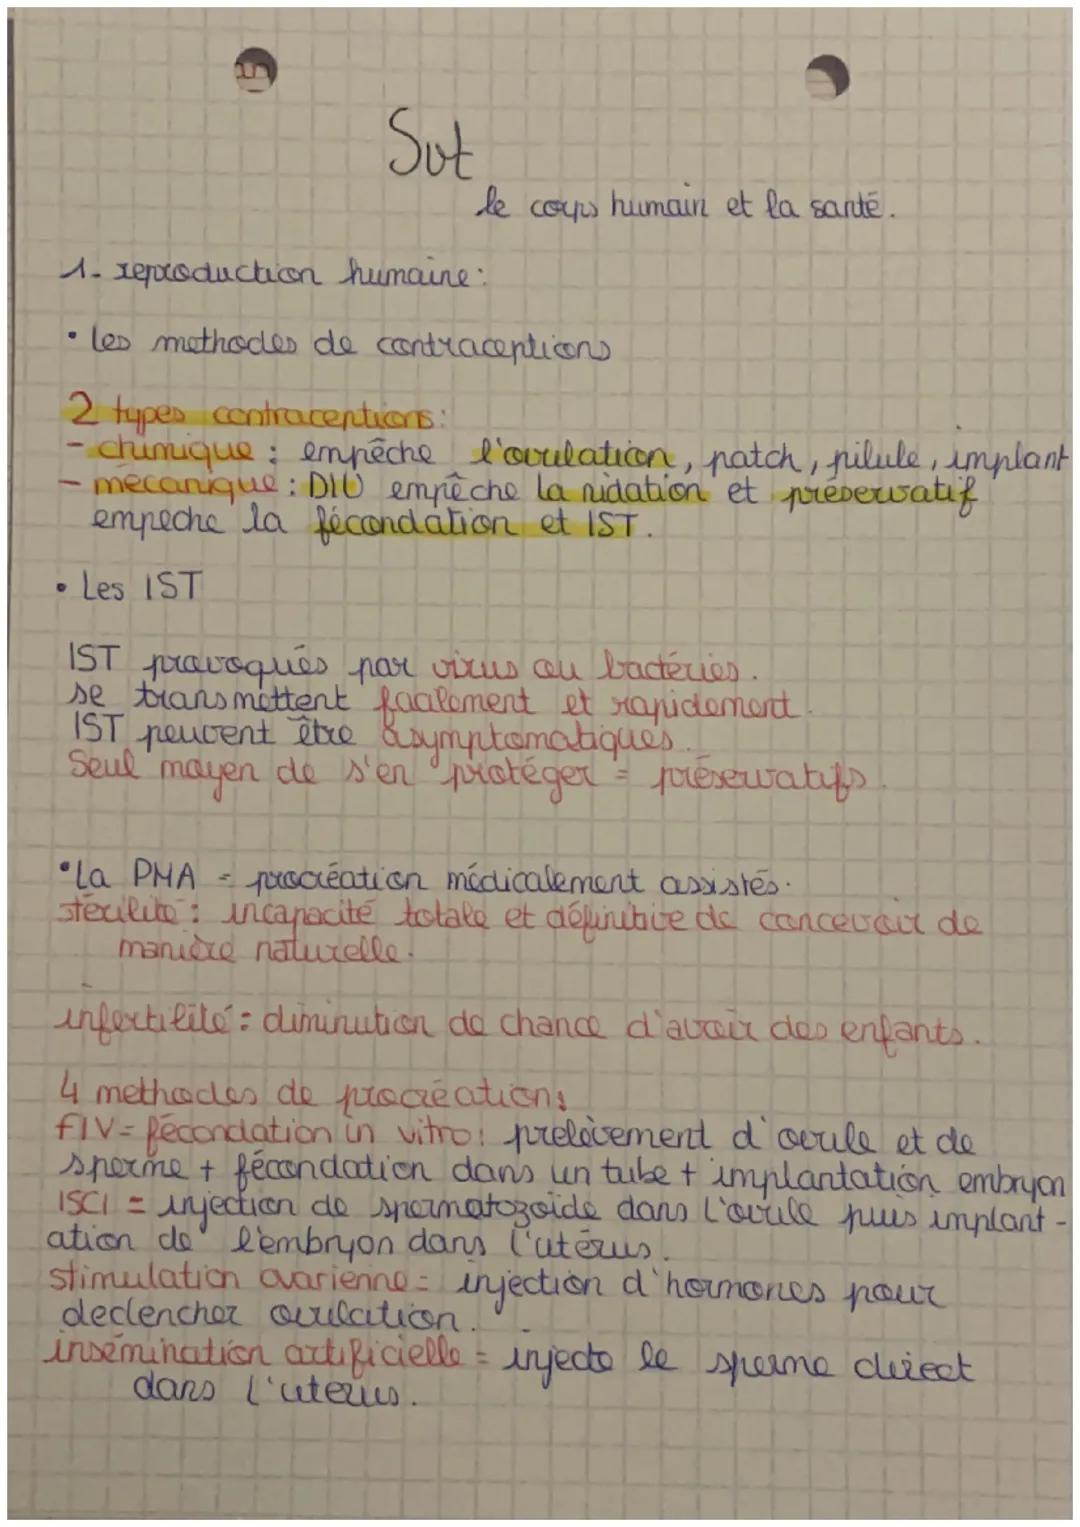 Svt
le corps humain et la santé.
1- reproduction humaine:
• les methodes de contraceptions
2 types contraceptions:
- chimique : empêche l'ovulation, patch, pilule, implant
- mécanique : DIU empêche la nidation et préservatif
empeche la fécondation et IST.
• Les IST
IST provoqués par virus ou bactéries.
se transmettent facilement et rapidement.
IST peuvent être asymptomatiques.
Seul moyen de s'en protéger = préservatifs.
• La PMA = procréation médicalement assistés.
stérilité : incapacité totale et définitive de concevoir de
manière naturelle.
infertilité : diminution de chance d'avoir des enfants.
4 methodes de procréation:
FIV = fécondation in vitro : prelèvement d'ovule et de
sperme + fécondation dans un tube + implantation embryon
ISCI = injection de spermatozoïde dans l'ovule puis implant-
ation de l'embryon dans l'utérus.
stimulation ovarienne = injection d'hormones pour
declencher ovulation.
insémination artificielle = injecte le sperme direct
dans l'uterus.